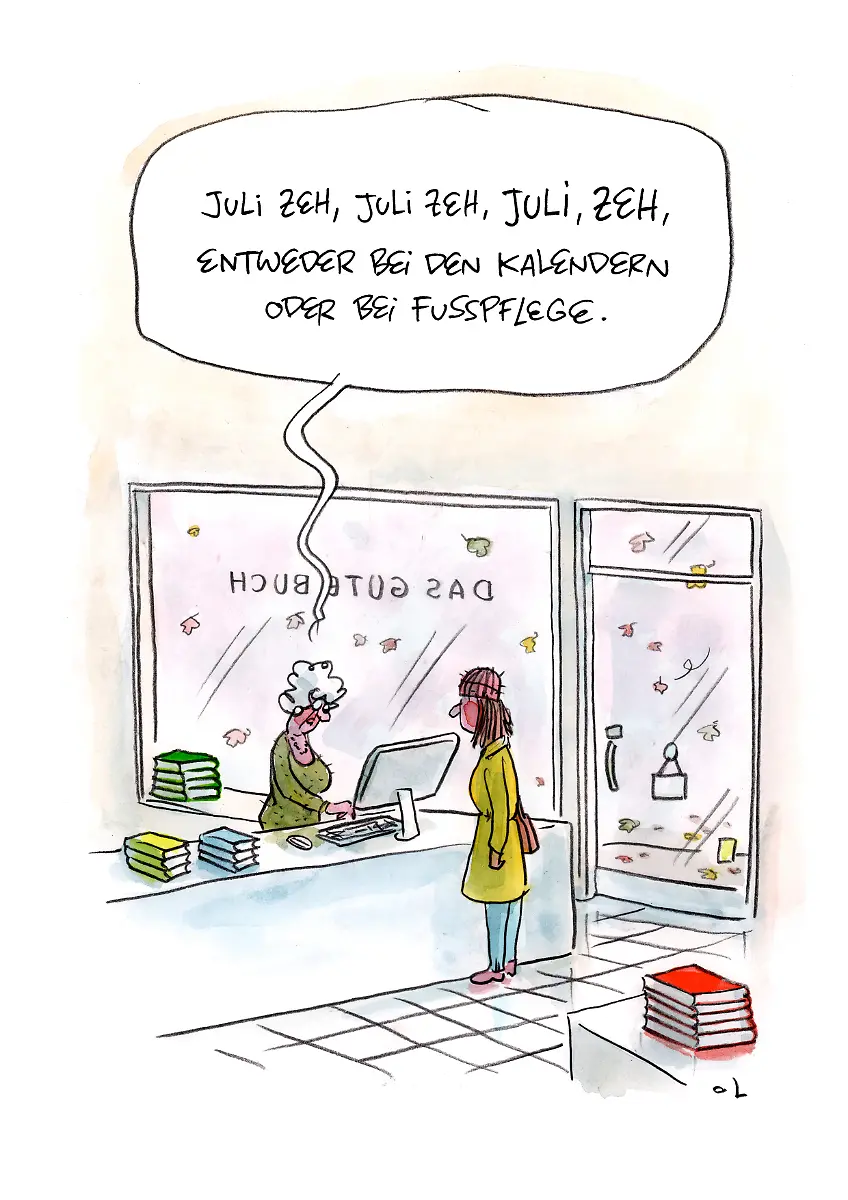 JULI ZEH, JULI ZEH, JULI, ZEH,
ENTWEDER BEI DEN KALENDERN
ODER BEI FUSSPFLEGE.
DAS GUTE BUCH
OL